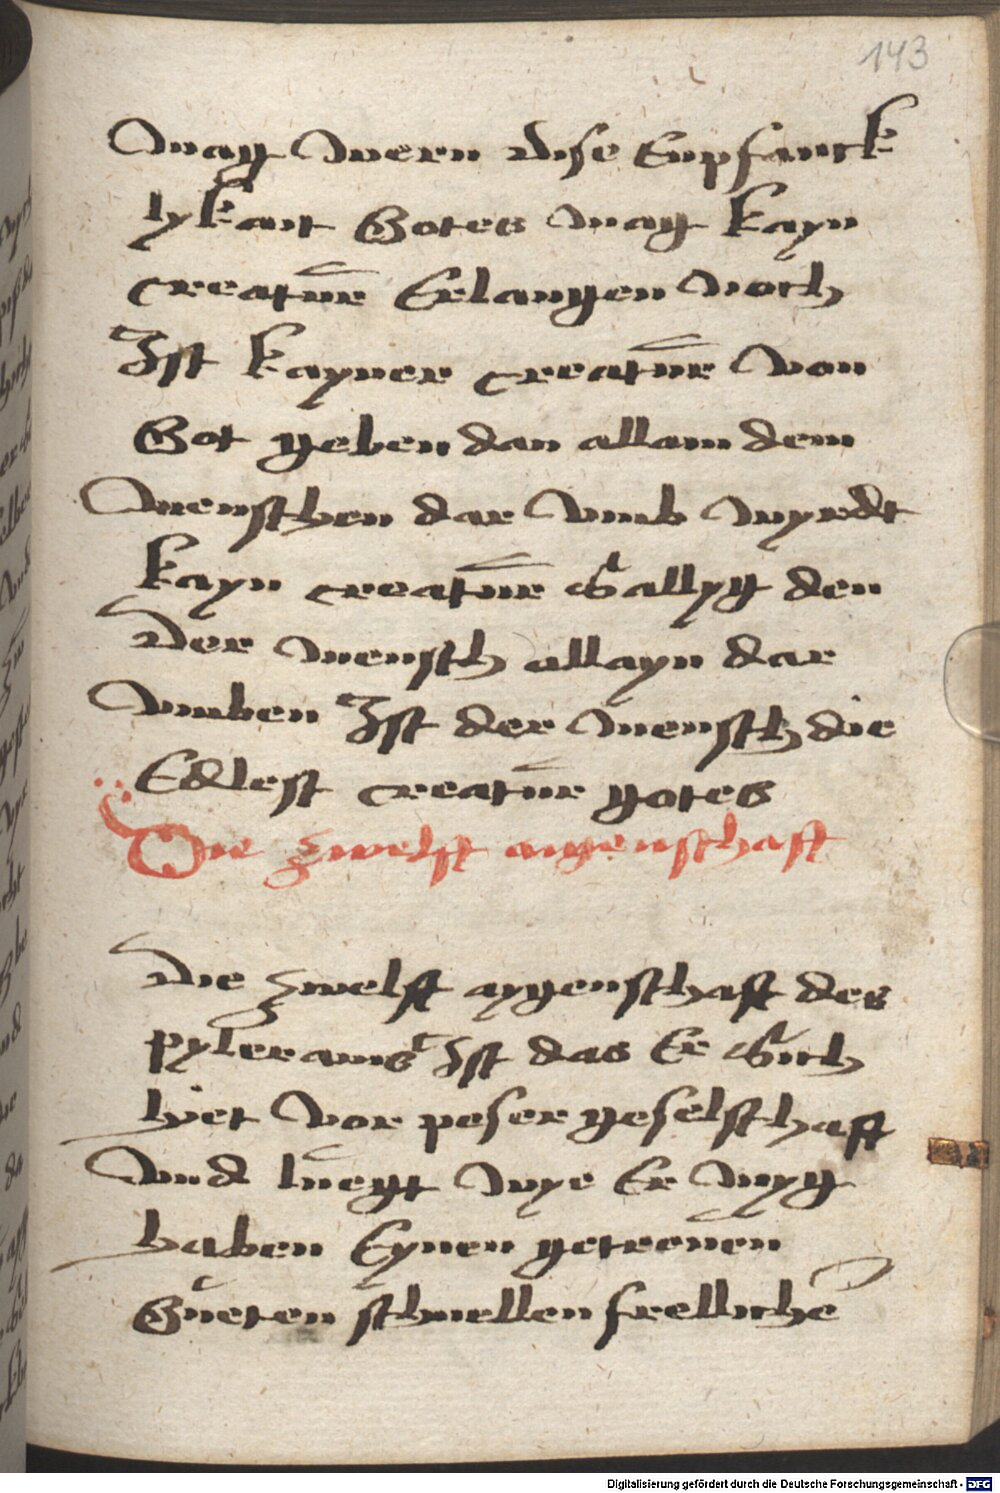 143
mag wern dise Enpfanck
lykait Gotes mag kayn
creatur Erlangen noch
Ist kayner creatur von
Got geben dan allain dem
menschen dar vmb wyrdt
kayn creatur Sallyg den
Der mensch allayn dar
vmben Ist der mensch die
Edlest creatur gotes
Die zwelfft aigenschafft
Die zwelfft aygenschafft des
pylerams Ist das Er Sich
hiet vor poser geselschafft
vnd luegt wye Er myg
haben Eynen getreuen
Gueten schnellen frelliche
Digitalisierung gefördert durch die Deutsche Forschungsgemeinschaft - DFG